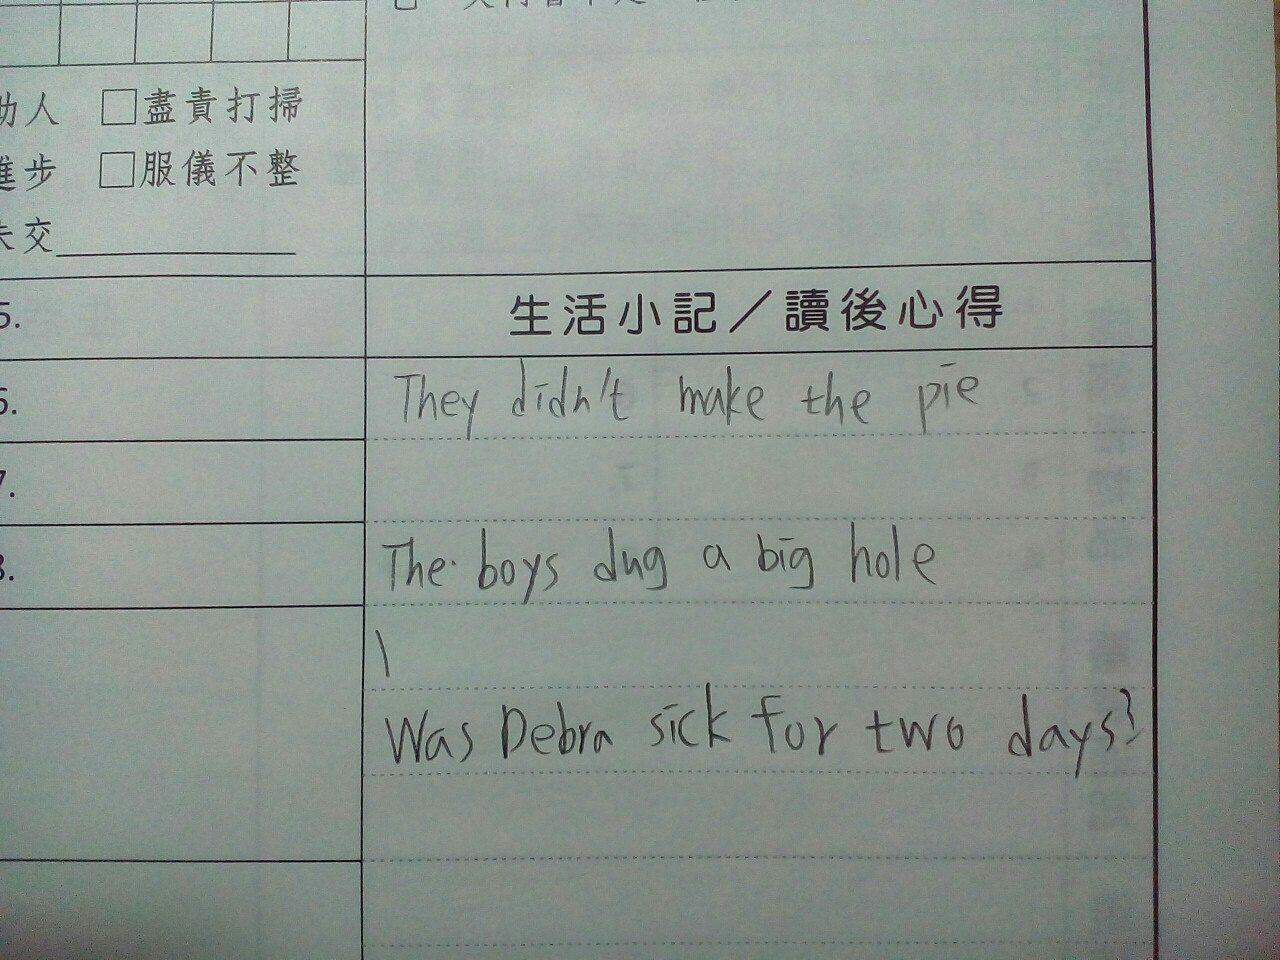 助人 □盡責打掃
進步 □服儀不整
未交
5.
生活小記／讀後心得
6.
They didn't make the pie
7.
8.
The boys dug a big hole
Was Debra sick for two days?